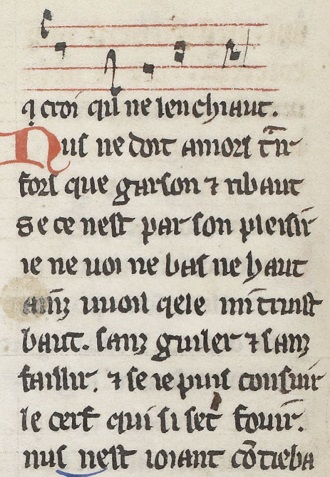 q croi qil ne len chiaut.
Nus ne doit amors tr̃
fors que garson ⁊ ribaut
se ce nest par son pleisir
ie ne uoi ne bas ne haut
ainz uuoil qele mi truist
baut. sanz guiler ⁊ sanz
faillir. ⁊ se ie puis consuir
le cerf qui si set fouir.
nus nest ioiant cõ tieba